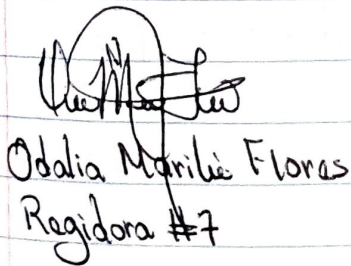 Odalia Marilie Floras
Regidora #7